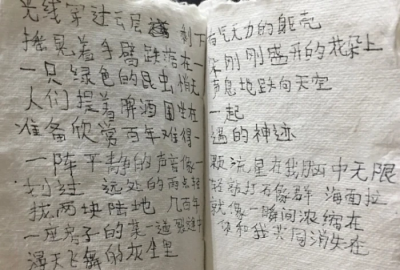 光线穿过云层 剩下有气无力的躯壳
摇晃着手臂跌落在一朵刚刚盛开的花朵上
一只绿色的昆虫悄无声息地跌向天空
人们提着解酒围坐在一起
准备欣赏百年难得一遇的神迹
一阵平静的声音像一颗流星在我脑中无限
划过 远处的雨点轻轻敲打石像群 海面拉
拢两块陆地 几百年就像一瞬间浓缩在
一座房子的某一道缝中 你和我共同消失在
漫天飞舞的灰尘里